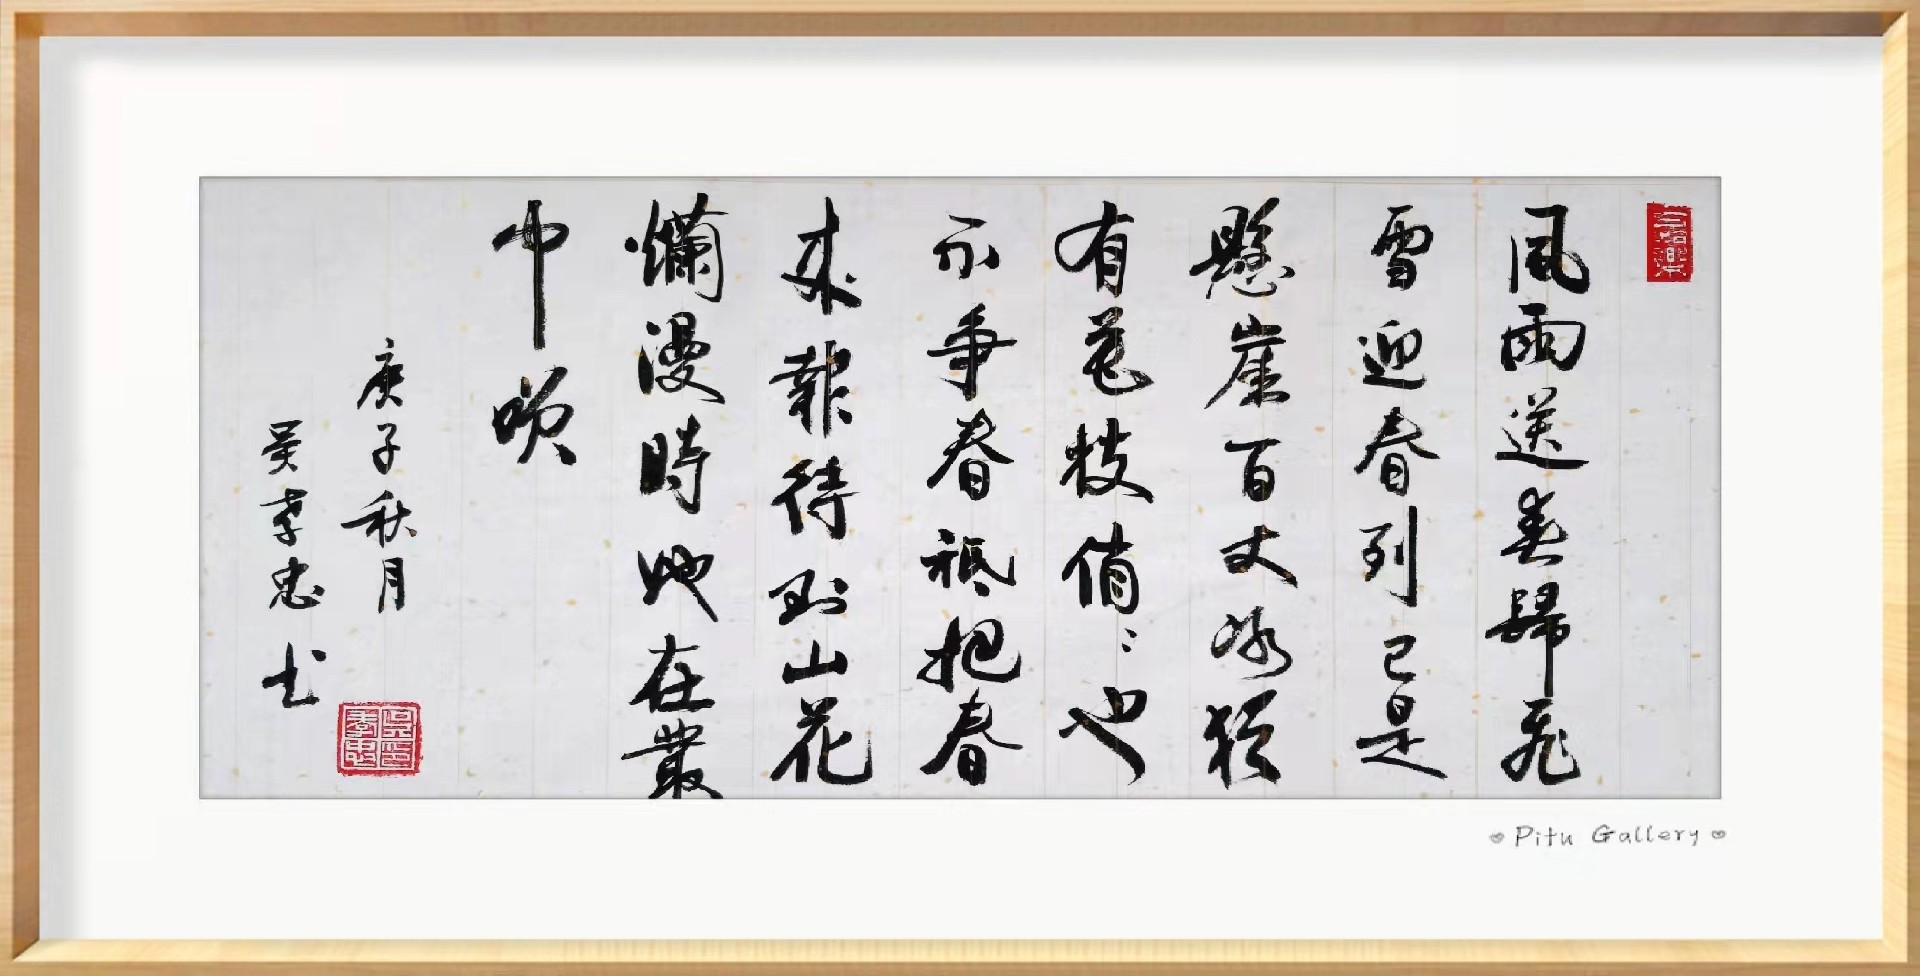 風雨送春歸飛
雪迎春到已是
懸崖百丈冰猶
有花枝俏〻也
不爭春祗把春
來報待到山花
爛漫時她在叢
中笑
庚子秋月
吴季忠书
吳印季忠
Pitu Gallery